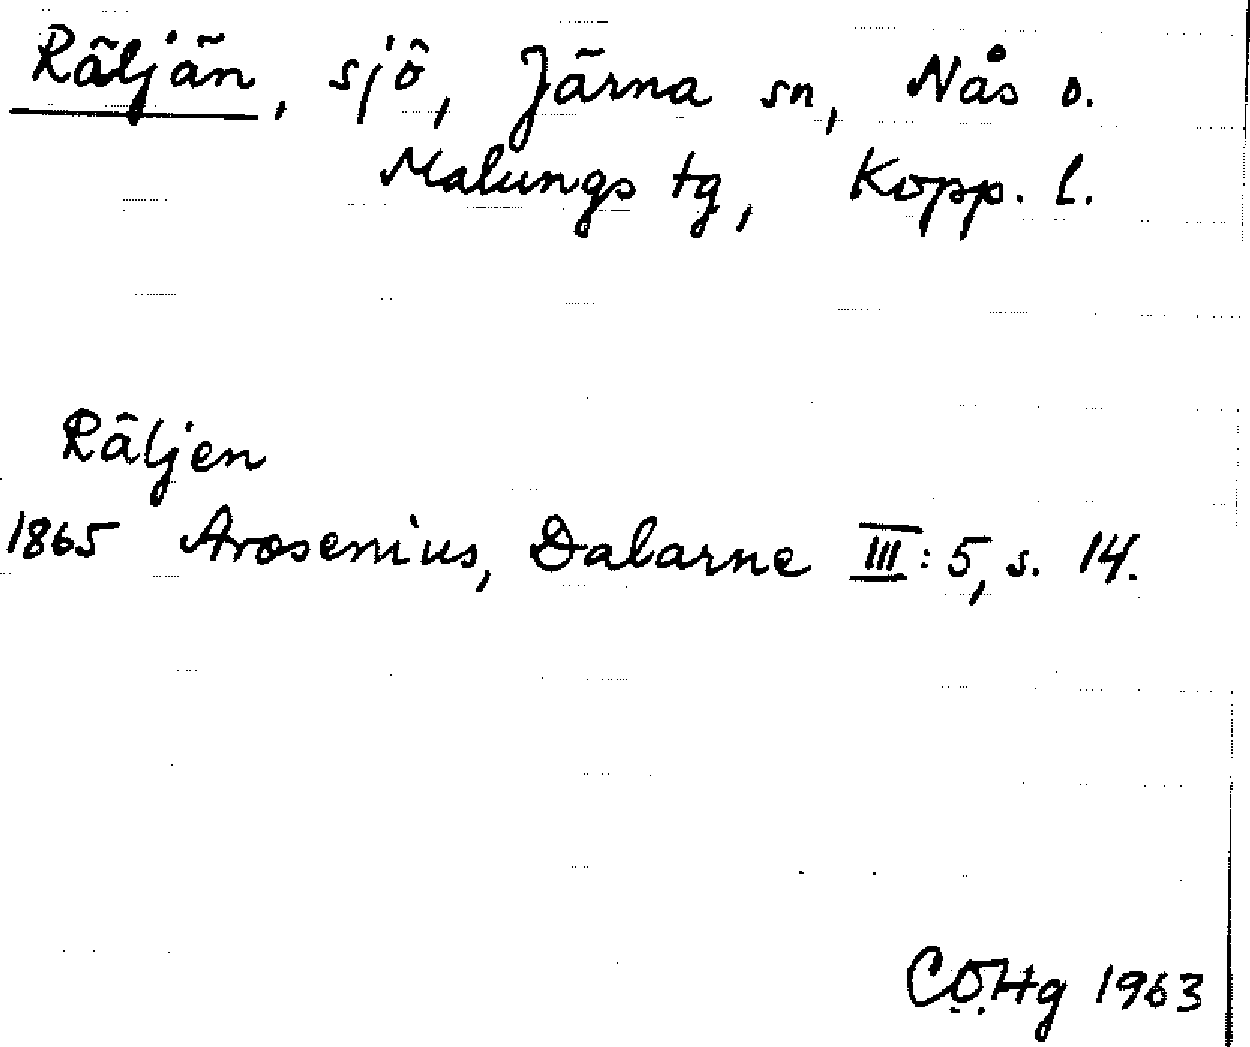 Räljän, sjö, Järna sn, Nås o.
Malungs tg, Kopp. l.
Räljen
1865 Arosenius, Dalarne III: 5, s. 14.
CÖHg 1963